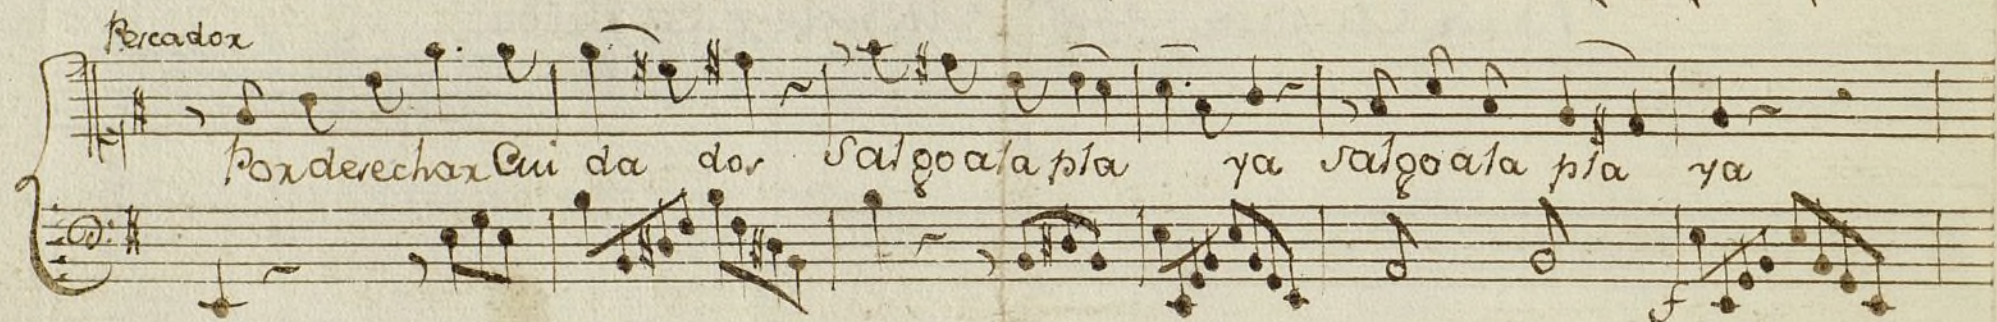 Pescador
Por desechar Cui da dos Salgo a la pla ya salgo a la pla ya
f